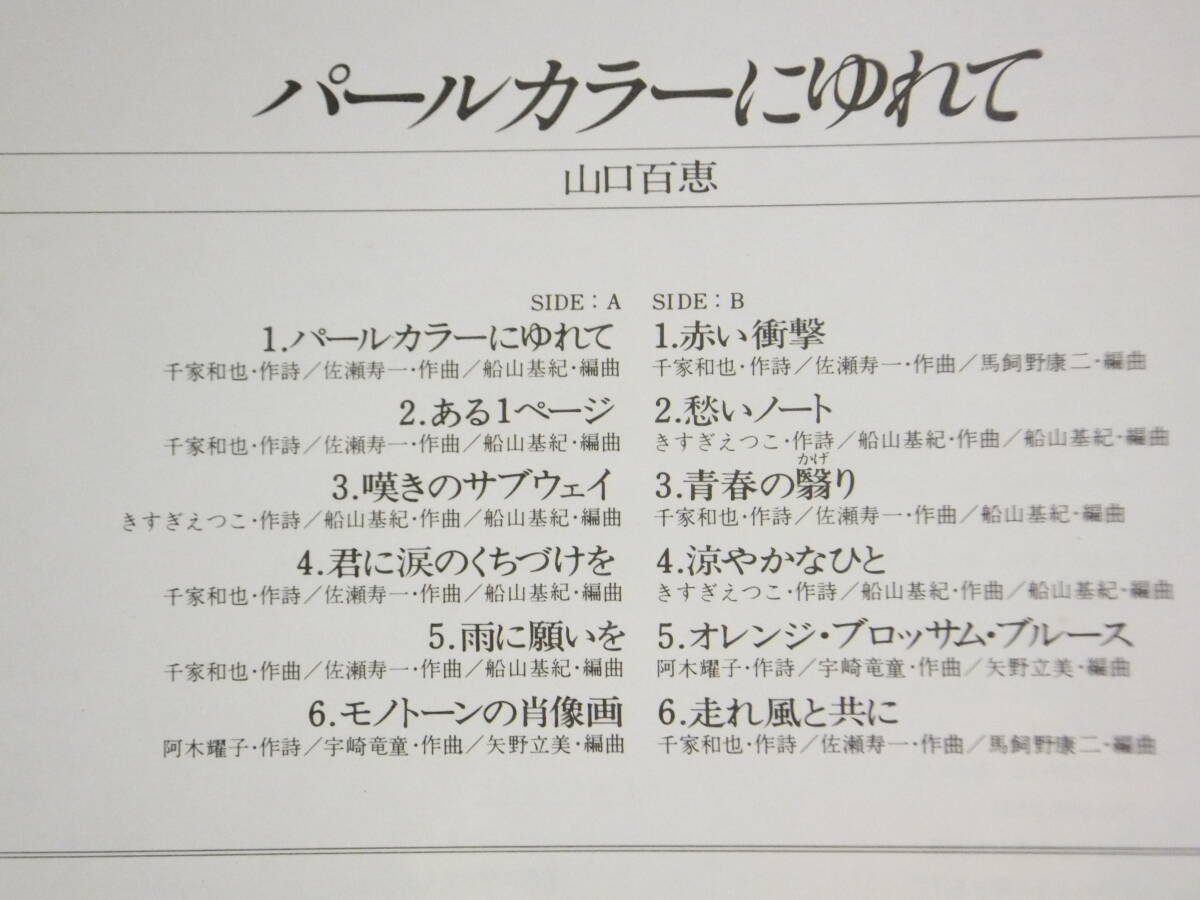 パールカラーにゆれて
山口百恵
SIDE : A
1.パールカラーにゆれて
千家和也・作詩／佐瀬寿一・作曲／船山基紀・編曲
2.ある1ページ
千家和也・作詩／佐瀬寿一・作曲／船山基紀・編曲
3.嘆きのサブウェイ
きすぎえつこ・作詩／船山基紀・作曲／船山基紀・編曲
4.君に涙のくちづけを
千家和也・作詩／佐瀬寿一・作曲／船山基紀・編曲
5.雨に願いを
千家和也・作曲／佐瀬寿一・作曲／船山基紀・編曲
6.モノトーンの肖像画
阿木耀子・作詩／宇崎竜童・作曲／矢野立美・編曲
SIDE : B
1.赤い衝撃
千家和也・作詩／佐瀬寿一・作曲／馬飼野康二・編曲
2.愁いノート
きすぎえつこ・作詩／船山基紀・作曲／船山基紀・編曲
かげ
3.青春の翳り
千家和也・作詩／佐瀬寿一・作曲／船山基紀・編曲
4.涼やかなひと
きすぎえつこ・作詩／船山基紀・作曲／船山基紀・編曲
5.オレンジ・ブロッサム・ブルース
阿木耀子・作詩／宇崎竜童・作曲／矢野立美・編曲
6.走れ風と共に
千家和也・作詩／佐瀬寿一・作曲／馬飼野康二・編曲